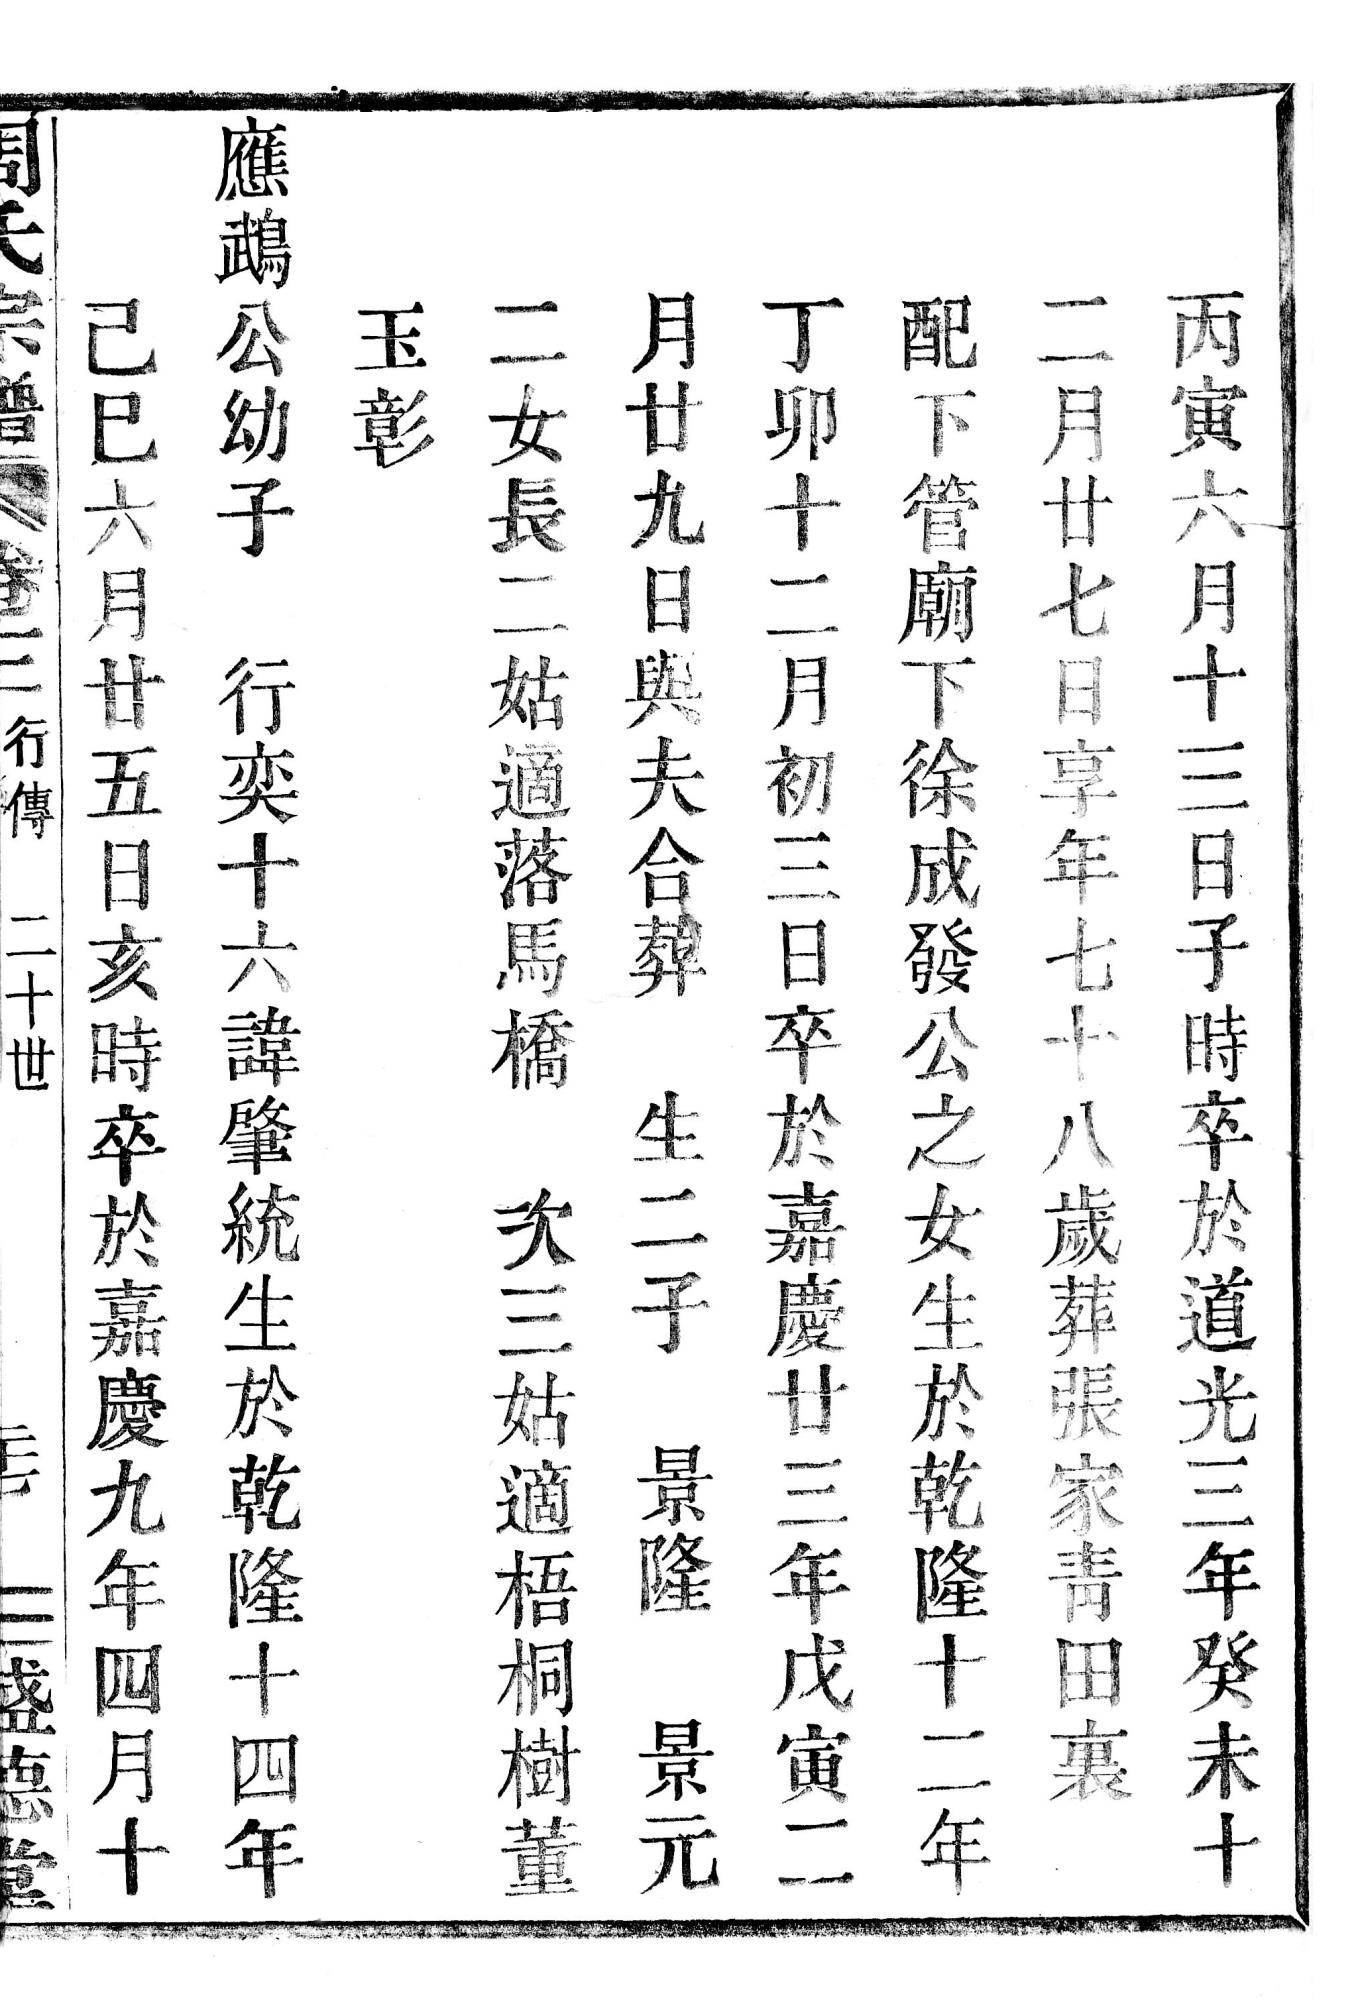 丙寅六月十三日子時卒於道光三年癸未十
二月廿七日享年七十八歲葬張家靑田裏
配下管廟下徐成發公之女生於乾隆十二年
丁卯十二月初三日卒於嘉慶廿三年戊寅二
月廿九日與夫合葬 生二子 景隆 景元
二女長二姑適落馬橋 次三姑適梧桐樹董
玉彰
應鵡公幼子 行奕十六諱肇統生於乾隆十四年
己巳六月廿五日亥時卒於嘉慶九年四月十
周氏宗譜 卷二 行傳 二十世 盛德堂